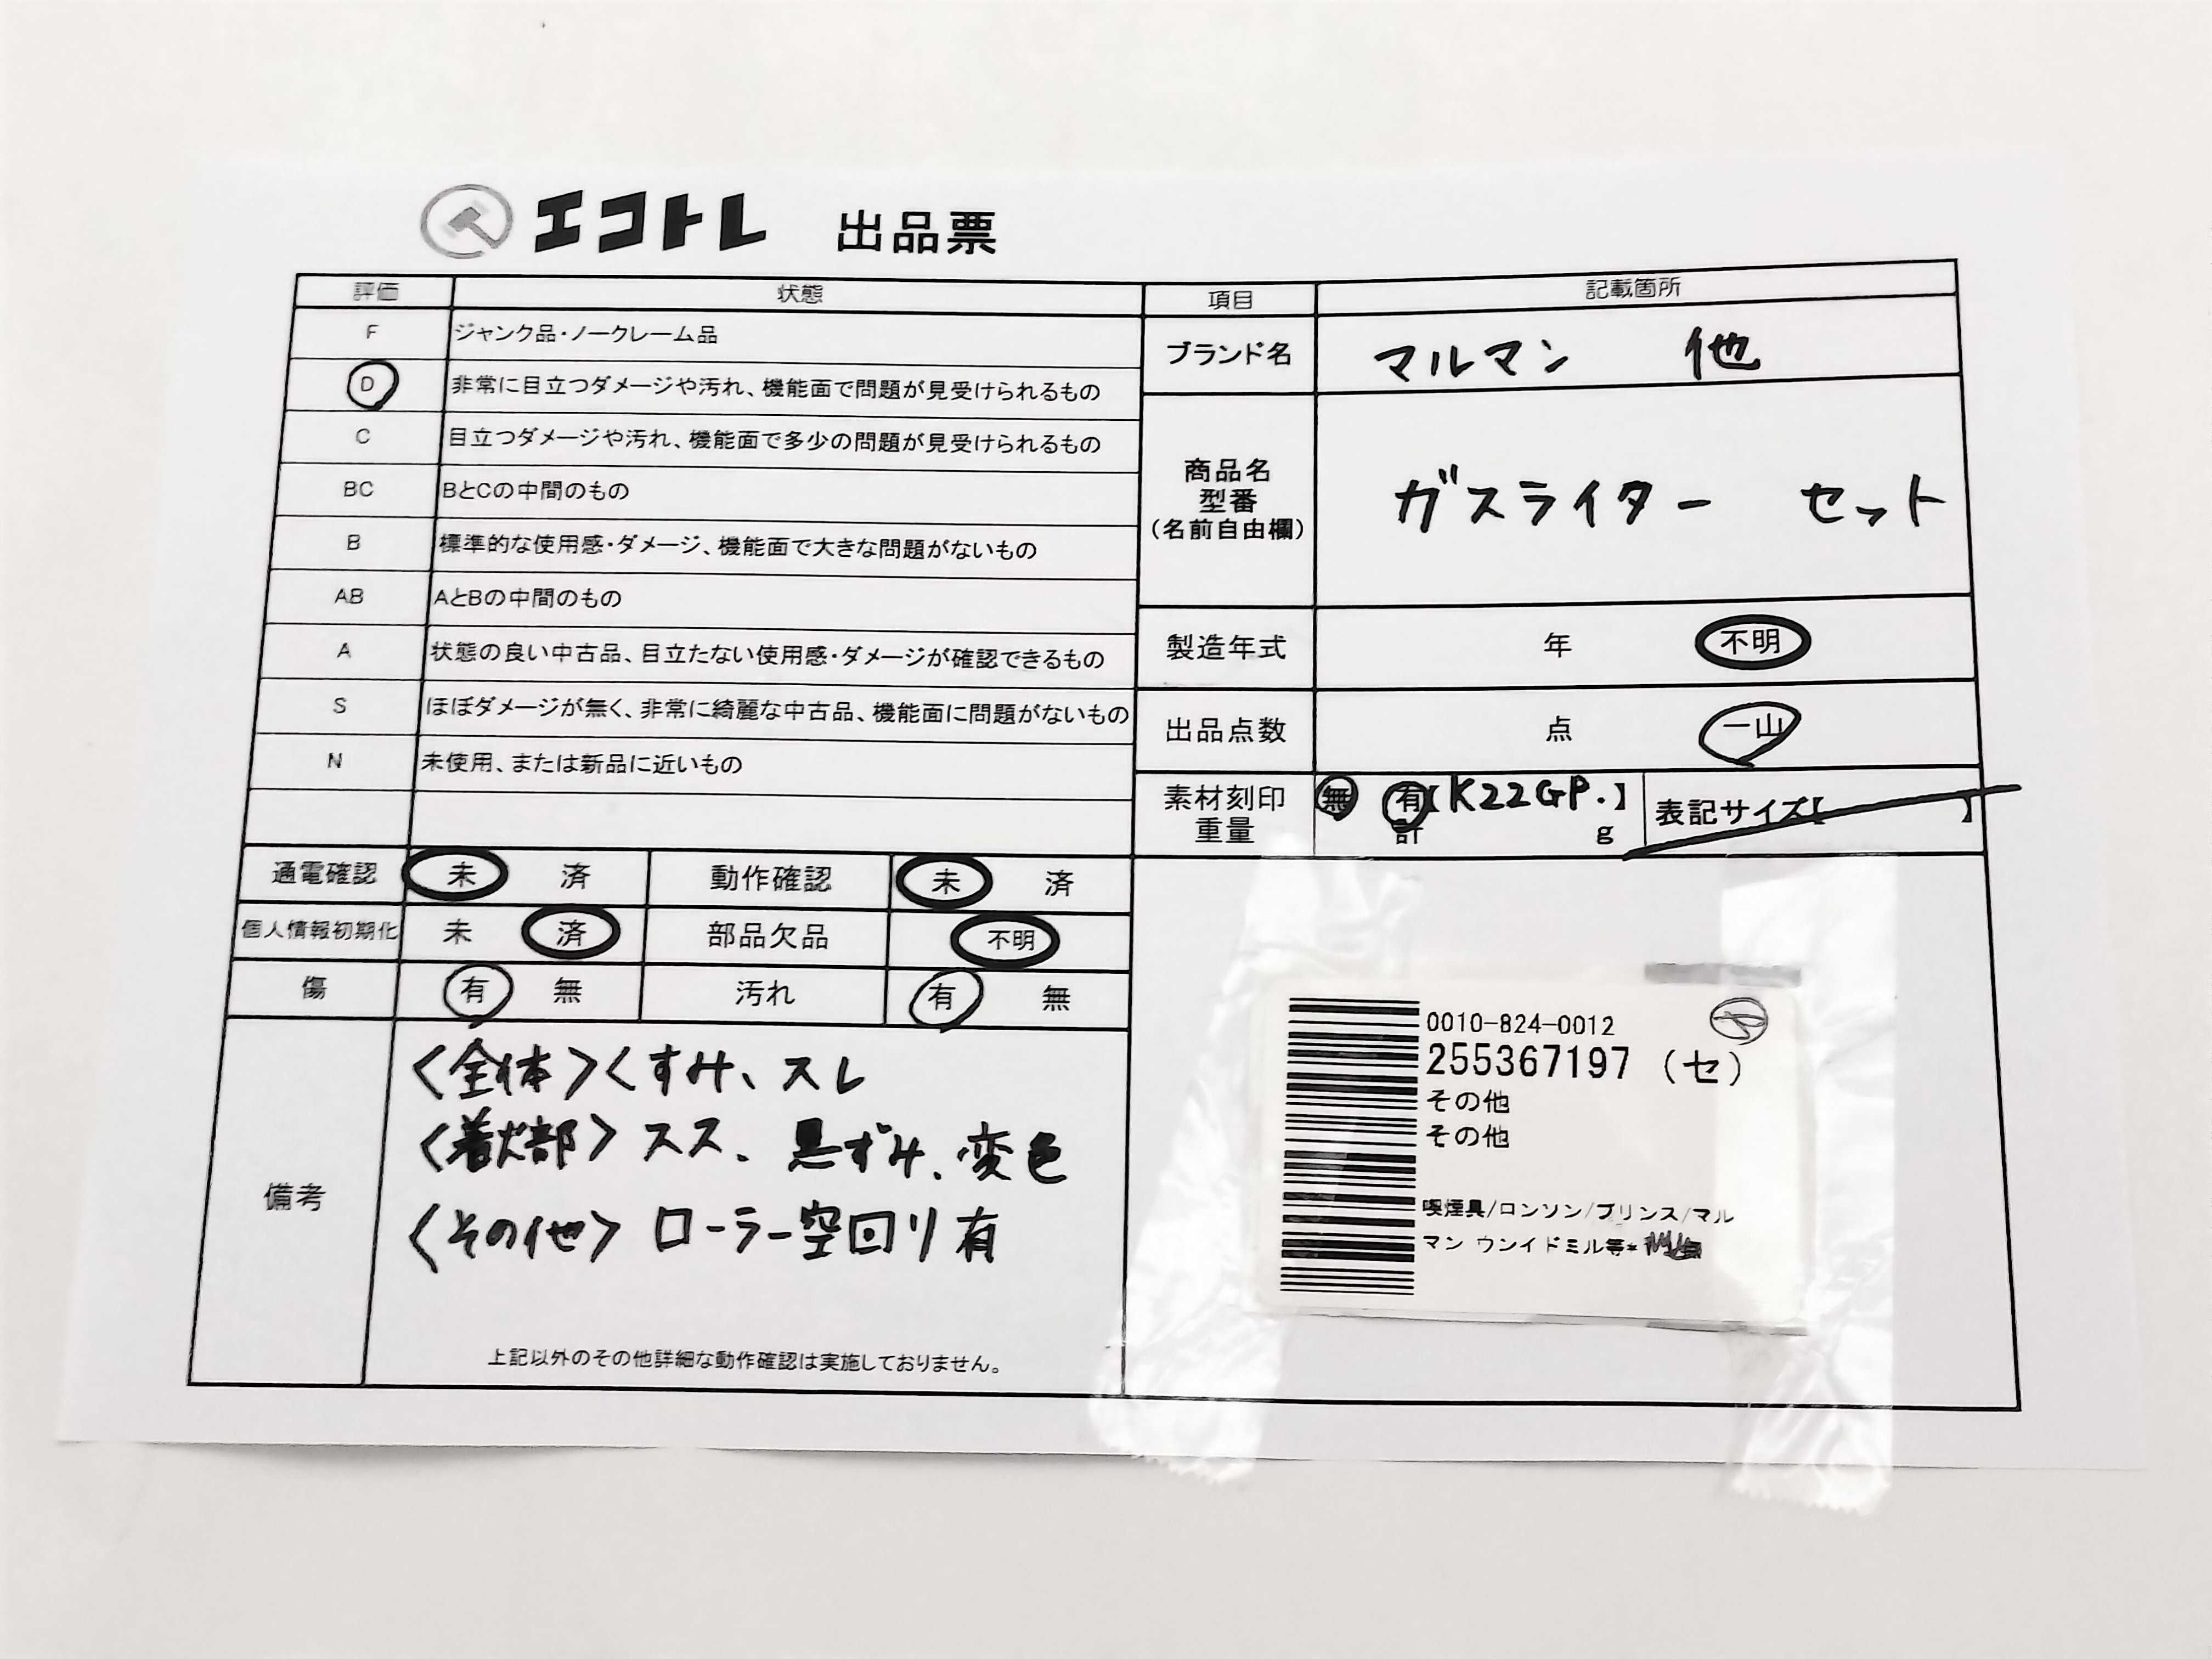 エコトレ 出品票
評価 状態
F ジャンク品・ノークレーム品
D 非常に目立つダメージや汚れ、機能面で問題が見受けられるもの
C 目立つダメージや汚れ、機能面で多少の問題が見受けられるもの
BC BとCの中間のもの
B 標準的な使用感・ダメージ、機能面で大きな問題がないもの
AB AとBの中間のもの
A 状態の良い中古品、目立たない使用感・ダメージが確認できるもの
S ほぼダメージが無く、非常に綺麗な中古品、機能面に問題がないもの
N 未使用、または新品に近いもの
通電確認 未 済 動作確認 未 済
個人情報初期化 未 済 部品欠品 不明
傷 有 無 汚れ 有 無
備考
〈全体〉くすみ、スレ
〈着火部〉スス、黒ずみ、変色
〈その他〉ローラー空回り有
上記以外のその他詳細な動作確認は実施しておりません。
項目 記載箇所
ブランド名 マルマン 他
商品名
型番
(名前自由欄)
ガスライター セット
製造年式 年 不明
出品点数 点 一山
素材刻印 無 有【K22GP.】 表記サイズ【 】
重量 計 g
0010-824-0012
255367197 (セ)
その他
その他
喫煙具/ロンソン/プリンス/マル
マン ウンイドミル等*